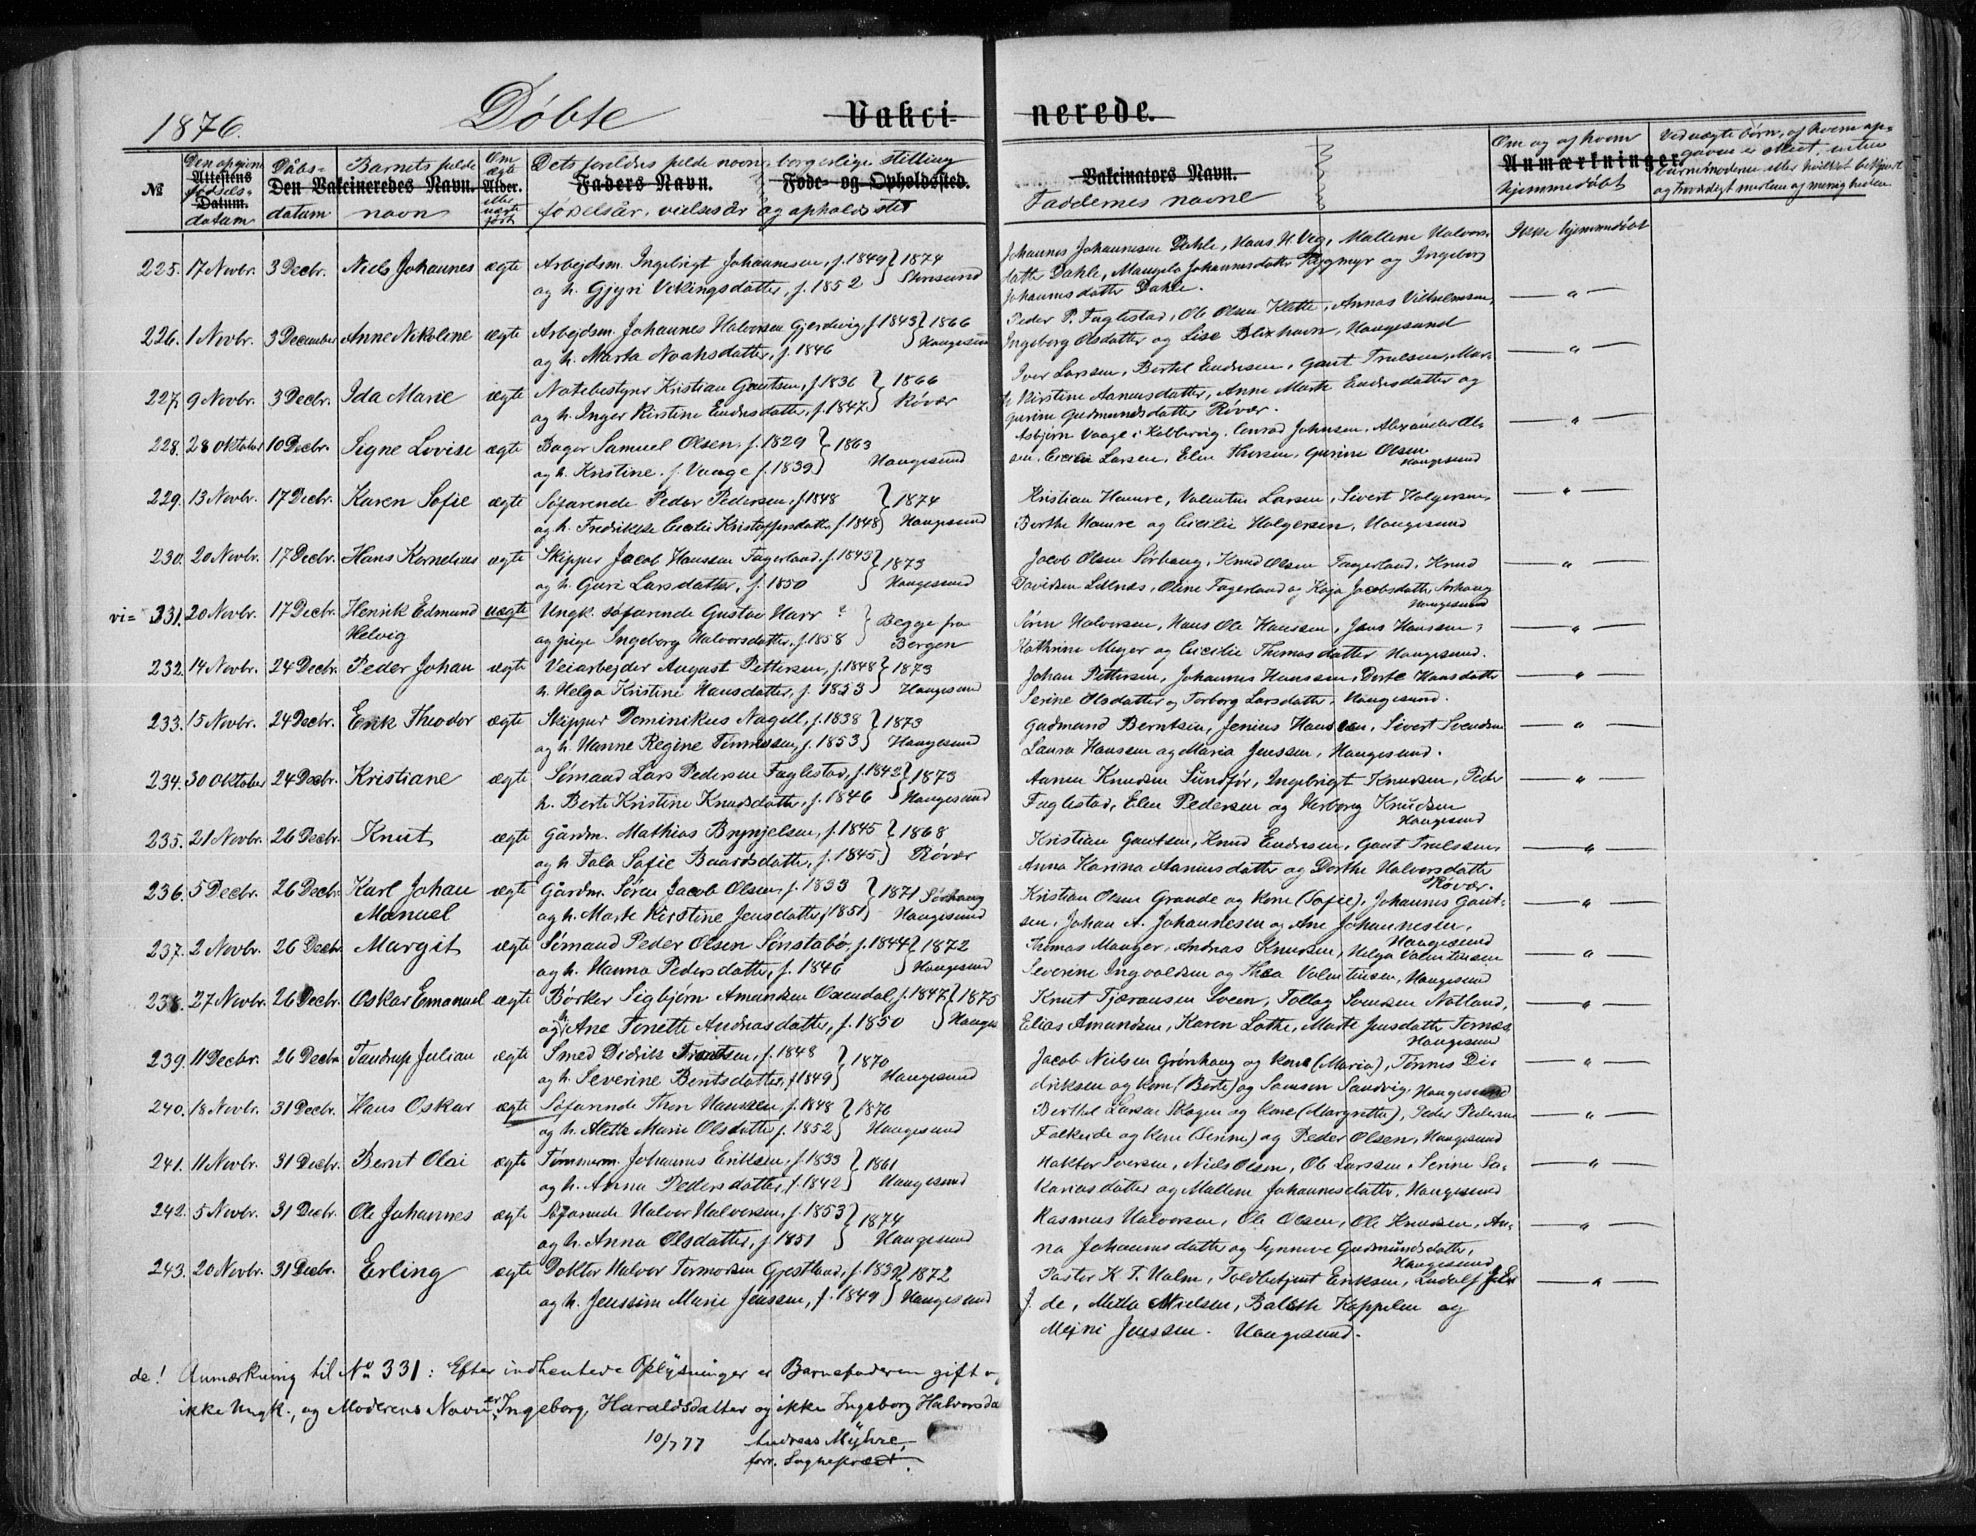 1876. Døbte Vakci- nerede.
№ Den opgivne fødsels- datum Attestens Datum.
Dåbs- datum
Barnets fulde navn Den Vakcineredes Navn.
Om ægte eller uægte født Alder.
Dets foreldres fulde navn, borgerlige stilling
Faders Navn. Føde- og Opholdssted.
fødselsår, vielsesår og opholdssted
Vakcinators Navn.
Faddernes navne
Om og af hvem
Anmærkninger.
hjemmedøbt
225. 17 Novbr. 3 Decbr. Niels Johannes ægte Arbejdsm. Ingebrigt Johannesen, f. 1849 } 1874
og h. Gjyri Vikingsdatter, f. 1852
Johannes Johannesen Dahle, Hans H. Veg, Mallene Halvors-
datter Dahle, Johannesdatter og Ingeborg
Johannesdatter Dahle.
Ikke hjemmedøbt
226. 1 Novbr. 3 December Anne Nikoline ægte Arbejdsm. Johannes Halvorsen Gjerdevig, f. 1843 } 1866
og h. Marta Noahsdatter, f. 1846 Haugesund
Peder P. Fuglestad, Ole Olsen Klette, Annas Vilhelmsen,
Ingeborg Olsdatter og Lise Blixhavn, Haugesund
— " —
227. 9 Novbr. 3 Decbr. Ida Marie ægte Notebestyrer Kristian Gautsen, f. 1836 } 1866
og h. Inger Kirstine Endresdatter, f. 1847 Røvær
Iver Larsen, Bertel Endresen, Gaut Truelsen, Mar-
Kirstine Aanensdatter, Anne Marte Endresdatter og
Gurine Gudmundsdatter Røvær.
— " —
228. 28 Oktober 10 Decbr. Signe Lovise ægte Bager Samuel Olsen, f. 1829 } 1863
og h. Kristine. f. Vaage f. 1839 Haugesund
Asbjørn Vaage i Kobbervig, Conrad Johnsen, Alexander Ol-
sen, Cecilie Larsen, Elen Iversen, Gurine Olsen
Haugesund
— " —
229. 13 Novbr. 17 Decbr. Karen Sofie ægte Søfarende Peder Pedersen, f. 1848 } 1874
og h. Fredrikke Cecilie Kristoffersdatter, f. 1848 Haugesund
Kristian Hamre, Valentin Larsen, Sivert Holgersen,
Berthe Hamre og Cecilie Holgersen, Haugesund
— " —
230. 20 Novbr. 17 Decbr. Hans Kornelius ægte Skipper Jacob Hansen Fagerland, f. 1843 } 1873
og h. Guri Larsdatter, f. 1850 Haugesund
Jacob Olsen Sørhaug, Knud Olsen Fagerland, Knud
Davidsen Lillenæs, Oline Fagerland og Kaja Jacobsdatter Sørhaug
Haugesund
— " —
vi= 331. 20 Novbr. 17 Decbr. Henrik Edmund uægte Ungk. søfarende Gustav Harr ? } Begge fra
Helvig og pige Ingeborg Halvorsdatter, f. 1858 Bergen
Søren Halvorsen, Hans Ole Hanssen, Jens Hanssen,
Kathrine Meyer og Cecilie Thomasdatter Haugesund.
— " —
232. 14 Novbr. 24 Decbr. Peder Johan ægte Veiarbejder August Pettersen, f. 1848 } 1873
h. Helga Kristine Hansdatter, f. 1853 Haugesund
Johan Pettersen, Johannes Hanssen, Dorte Hansdatter
Serine Olsdatter og Torborg Larsdatter, Haugesund.
— " —
233. 15 Novbr. 24 Decbr. Erik Theodor ægte Skipper Dominikus Nagell, f. 1838 } 1873
og h. Hanne Regine Tønnessen, f. 1853 Haugesund
Gudmund Berntsen, Jenius Hansen, Sivert Svendsen
Laura Hanssen og Maria Jenssen, Haugesund.
— " —
234. 30 Oktober 24 Decbr. Kristiane ægte Sømand Lars Pedersen Fuglestad, f. 1842 } 1873
h. Berte Kristine Knudsdatter, f. 1846 Haugesund
Aanen Knudsen Sundfør, Ingebrigt Knudsen, Peder
Fuglestad, Elen Pedersen og Herborg Knudsen
Haugesund
— " —
235. 21 Novbr. 26 Decbr. Knut ægte Gårdm. Mathias Brynjelsen, f. 1845 } 1868
og h. Tala Sofie Baardsdatter, f. 1845 Røvær
Kristian Gautsen, Knud Endresen, Gaut Truelssen,
Anna Karina Aanensdatter og Dorthe Halvorsdatter
Røvær.
— " —
236. 5 Decbr. 26 Decbr. Karl Johan ægte Gårdm. Søren Jacob Olsen, f. 1833 } 1871 Sørhaug
Manuel og h. Marte Kirstine Jensdatter, f. 1851 Haugesund
Kristian Olsen Grande og kone (Sofie), Johannes Gaut-
sen, Johan A. Johannesen og Ane Johannesen,
Haugesund
— " —
237. 2 Novbr. 26 Decbr. Margit ægte Sømand Peder Olsen Sønstabø, f. 1844 } 1872
og h. Hanna Pedersdatter, f. 1846 Haugesund
Thomas Manger, Andreas Knudsen, Helga Valentinsen
Severine Ingvaldsen og Thea Valentinsen, Haugesund
— " —
238. 27 Novbr. 26 Decbr. Oskar Emanuel ægte Børker Sigbjørn Amundsen Oxendal, f. 1847 } 1875
og h. Ane Tonette Andreasdatter, f. 1850 Hauges
Knut Tjæransen Sveen, Tollag Svendsen Natland,
Elias Amundsen, Karen Lothe, Marte Jensdatter Tornæs
Haugesund
— " —
239. 11 Decbr. 26 Decbr. Taudrup Julian ægte Smed Didrik Trontsen, f. 1848 } 1870
og h. Severine Bentsdatter, f. 1849 Haugesund
Jacob Nielsen Grønhaug og kone (Maria), Tønnes Di-
driksen og kone (Berte) og Samson Sandvig, Haugesund
— " —
240. 18 Novbr. 31 Decbr. Hans Oskar ægte Søfarende Thor Hanssen, f. 1848 } 1876
og h. Alette Marie Olsdatter, f. 1852 Haugesund
Berthel Larsen Skogen og kone (Margrethe), Peder Pedersen
Falkeide og kone (Serine) og Peder Olsen, Haugesund
— " —
241. 11 Novbr. 31 Decbr. Bernt Olai ægte Tømmerm. Johannes Eriksen, f. 1833 } 1861
og h. Anna Pedersdatter, f. 1842 Haugesund
Haktor Iversen, Niels Olsen, Ole Larssen, Serine Sa-
kariasdatter og Mallene Johannesdatter, Haugesund
— " —
242. 5 Novbr. 31 Decbr. Ole Johannes ægte Søfarende Halvor Halvorsen, f. 1853 } 1874
og h. Anna Olsdatter, f. 1851 Haugesund
Rasmus Halvorsen, Ole Olsen, Ole Knudsen, An-
na Johannesdatter og Synneve Gudmundsdatter,
Haugesund
— " —
243. 20 Novbr. 31 Decbr. Erling ægte Doktor Halvor Tormorsen Gjestland, f. 1839 } 1872
og h. Jenssine Marie Jenssen, f. 1849 Haugesund
Pastor K. T. Halm, Toldbetjent Eriksen, Ludolf
de, Meta Nielsen, Balette Kappelen og
Mejni Jenssen. Haugesund.
— " —
de! Anmærkning til No 331: Efter indhentede Oplysninger er Barnefaderen gift og
ikke Ungk., og Moderens Navn er Ingeborg Haraldsdatter og ikke Ingeborg Halvorsda
10/7 77 Andreas Myhre,
forr. Sognepræst.